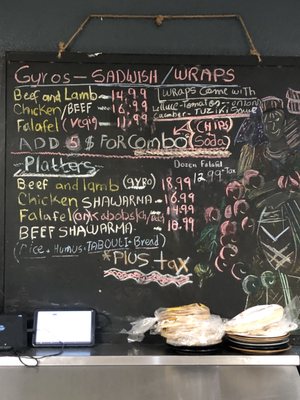 Gyros - SADWISH / WRAPS
Beef and Lamb - 14.99
Chicken / BEEF - 16.99
Falafel (veg) - 11.99
WRAPS COME WITH
Lettuce - Tomatoes - onion
Cucmber - TUZIKI Sauce
ADD 5 $ FOR Combo
(CHIPS)
Soda
Platters
Dozen Falafel
12.99 + Tax
Beef and lamb (GYRO) 18.99
Chicken SHAWARMA - 16.99
Falafel (or) Kabobs 14.99
BEEF SHAWARMA - 18.99
(Rice. Humus. TABOULI - Bread)
*PLUS tax